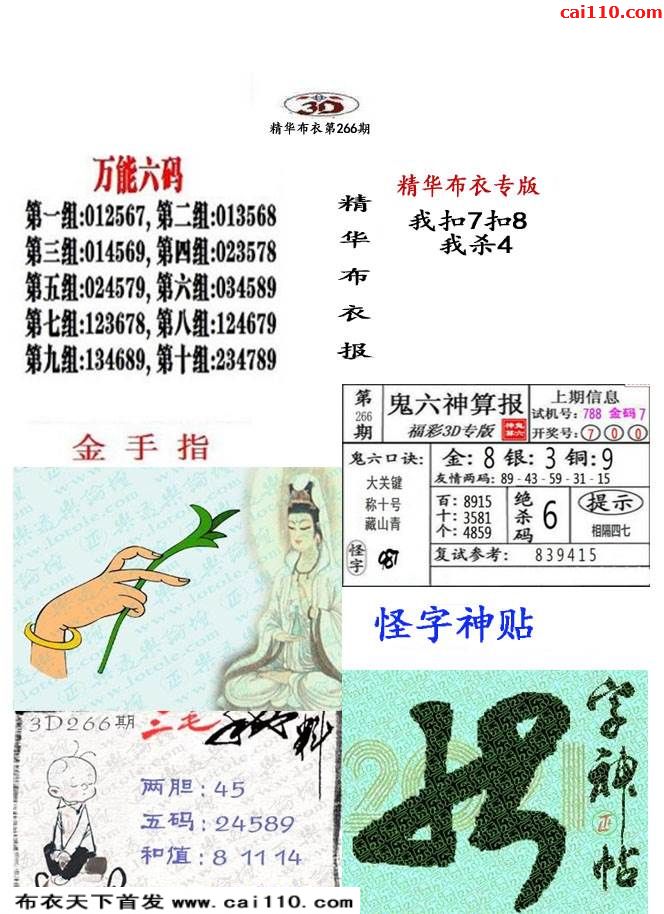 cai110.com
3D
精华布衣第266期
万能六码
第一组:012567, 第二组:013568
第三组:014569, 第四组:023578
第五组:024579, 第六组:034589
第七组:123678, 第八组:124679
第九组:134689, 第十组:234789
精华布衣报
精华布衣专版
我扣7扣8
我杀4
第266期
鬼六神算报
福彩3D专版
上期信息
试机号: 788 金码 7
开奖号: 7 0 0
鬼六口诀:
大关键
称十号
藏山青
金: 8 银: 3 铜: 9
友情两码: 89 - 43 - 59 - 31 - 15
百: 8915
十: 3581
个: 4859
绝杀码 6
提示
相隔四七
怪字
复试参考: 839415
金手指
怪字神贴
3D266期
三毛
料
两胆: 45
五码: 24589
和值: 8 11 14
字神帖
正
布衣天下首发 www.cai110.com